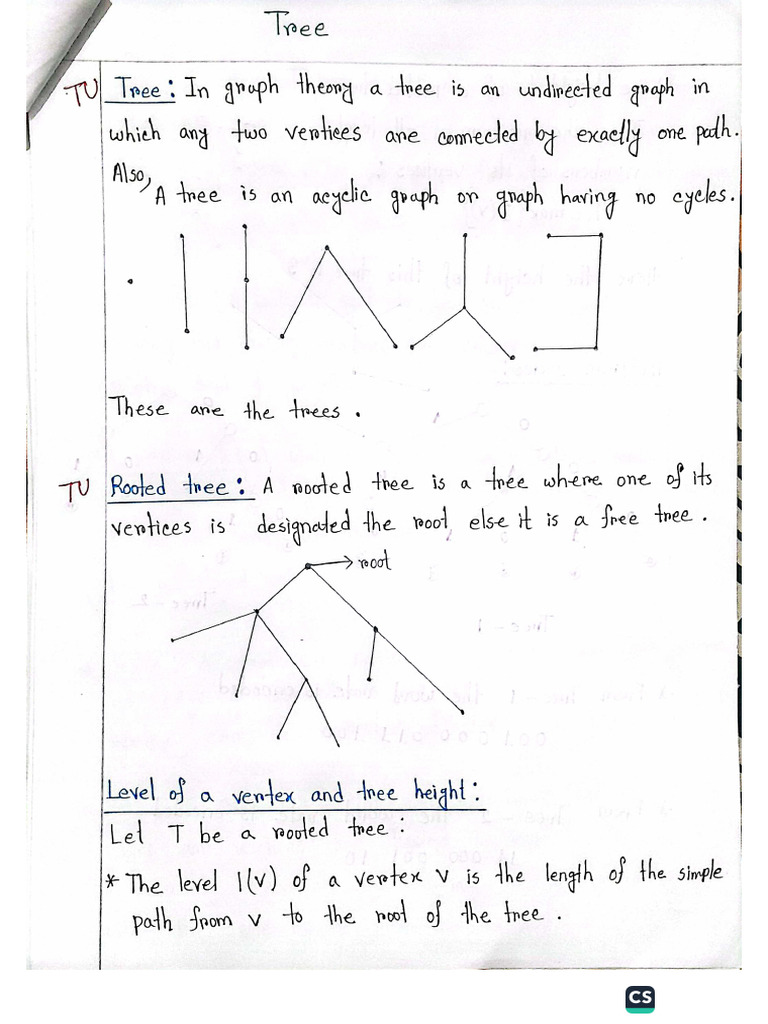 Tree
TU Tree: In graph theory a tree is an undirected graph in
which any two vertices are connected by exactly one path.
Also,
A tree is an acyclic graph or graph having no cycles.
These are the trees.
TU Rooted tree: A rooted tree is a tree where one of its
vertices is designated the root, else it is a free tree.
root
Level of a vertex and tree height:
Let T be a rooted tree:
* The level l(v) of a vertex v is the length of the simple
path from v to the root of the tree.
CS